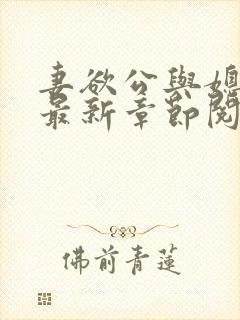 妻欲公與媳
最新章節閱
佛前青蓮